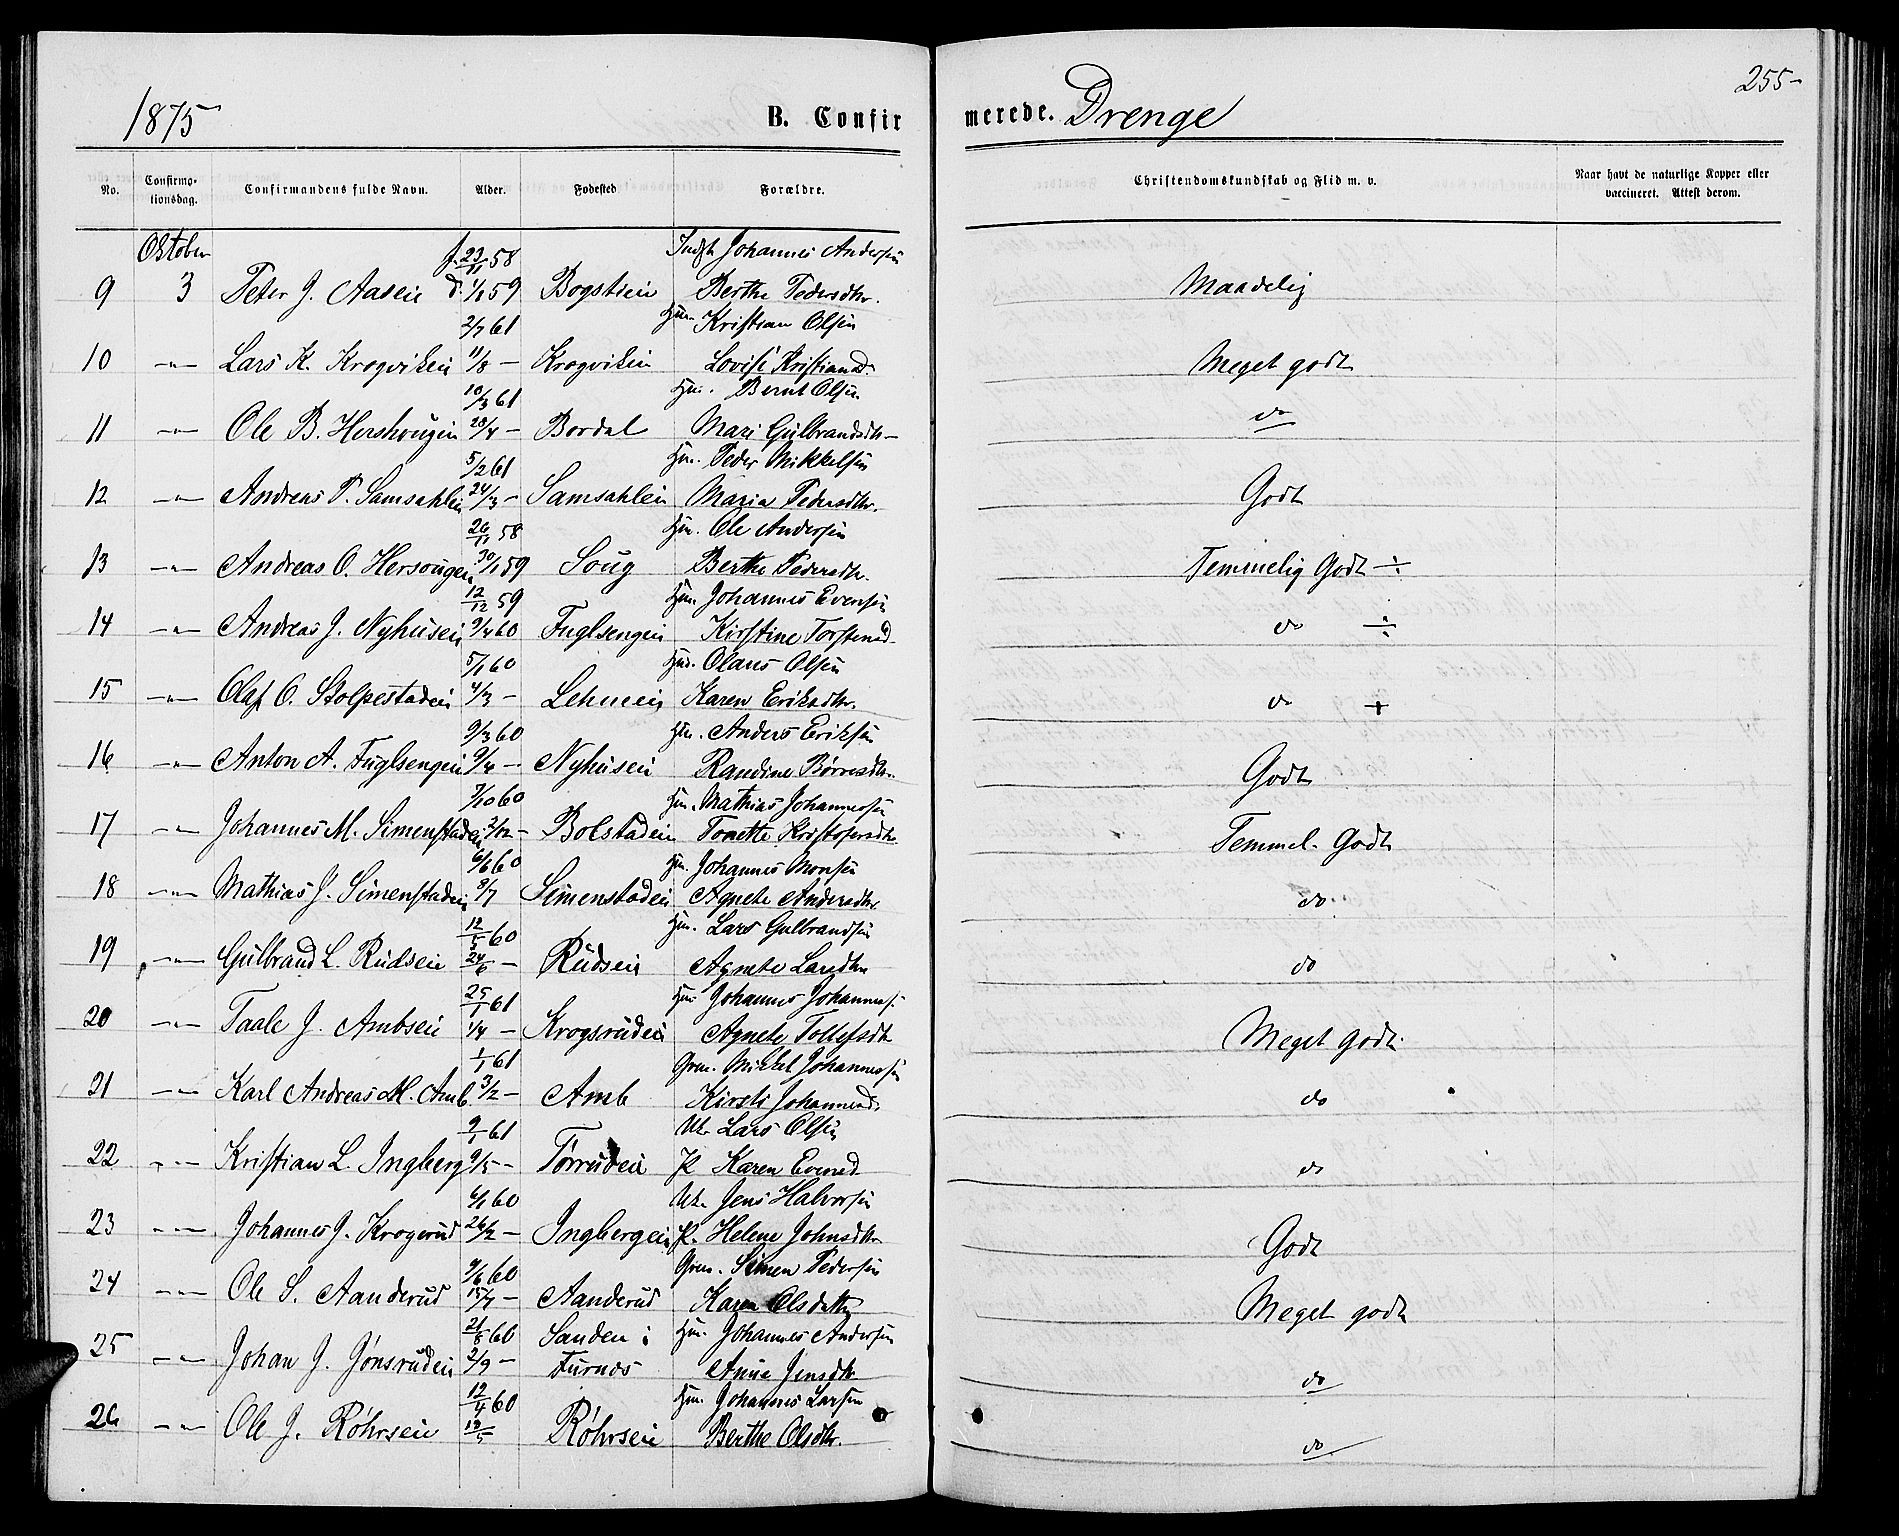 1875
B. Confirmerede. Drenge
255
No. Confirmationsdag. Confirmandens fulde Navn. Alder. Fødested Forældre. Christendomskundskab og Flid m. v. Naar havt de naturlige Kopper eller vaccineret. Attest derom.
Oktober f. 23/11 58 Johannes Andersen
9 3 Peter J. Aasen d. 1/1 59 Bogstien Berthe Pedersdtr. Maadelig
2/7 61 Hm. Kristian Olsen
10 -"- Lars K. Krogviken 11/8 - Krogviken Lovise Kristiansd. Meget godt
10/3 61 Hm. Bernt Olsen
11 -"- Ole B. Hershougen 28/4 - Bordal Mari Gulbrandsdtr do
5/2 61 Hm. Peder Mikkelsen
12 -"- Andreas P. Samsahlen 24/3 - Samsahlen Maria Pedersdtr. Godt
26/11 58 Hm. Ole Andersen
13 -"- Andreas O. Hersougen 30/1 59 Soug Berthe Pedersdtr. Temmelig Godt ÷
12/12 59 Hm. Johannes Evensen
14 -"- Andreas J. Nyhusen 9/4 60 Fuglsengen Kirstine Torstensd. do ÷
5/1 60 Hm. Olaus Olsen
15 -"- Olaf O. Stolpestaden 4/3 - Lehmen Karen Eriksdtr. do +
9/3 60 Hm. Anders Eriksen
16 -"- Anton A. Fuglsengen 9/4 - Nyhusen Randine Børresdtr. Godt
7/10 60 Hm. Mathias Johannessen
17 -"- Johannes M. Simenstaden 2/12 - Bolstaden Tonette Kristofersdtr. Temmel. Godt
6/6 60 Hm. Johannes Monsen
18 -"- Mathias J. Simenstaden 8/7 Simenstaden Agnete Andersdtr. do
12/5 60 Hm. Lars Gulbrandsen
19 -"- Gulbrand L. Rudsen 24/6 - Rudsen Agnete Larsdtr do
25/1 61 Hm. Johannes Johanness.
20 -"- Taale J. Ambsen 1/4 - Krogsruden Agnete Tollefsdtr Meget godt
1/1 61 Grm. Mikkel Johannessen
21 -"- Karl Andreas M. Amb. 3/2 - Amb Kirsti Johannesd. do
9/1 61 Lars Olsen
22 -"- Kristian L. Ingberg 9/5 - Tørruden P. Karen Evensd. do
6/1 60 Jens Halvorsen
23 -"- Johannes J. Krogerud 26/2 - Ingbergen P. Helene Johnsdtr Godt
9/6 60 Grm. Simen Pedersen
24 -"- Ole S. Aanderud 15/7 - Aanderud Karen Olsdatter Meget godt
21/8 60 Sanden i Hm. Johannes Andersen
25 -"- Johan J. Jønsruden 2/9 - Furnæs Anne Jensdtr do
12/4 60 Hm. Johannes Larsen
26 -"- Ole J. Røhrsen 19/5 Røhrsen Berthe Olsdtr. do